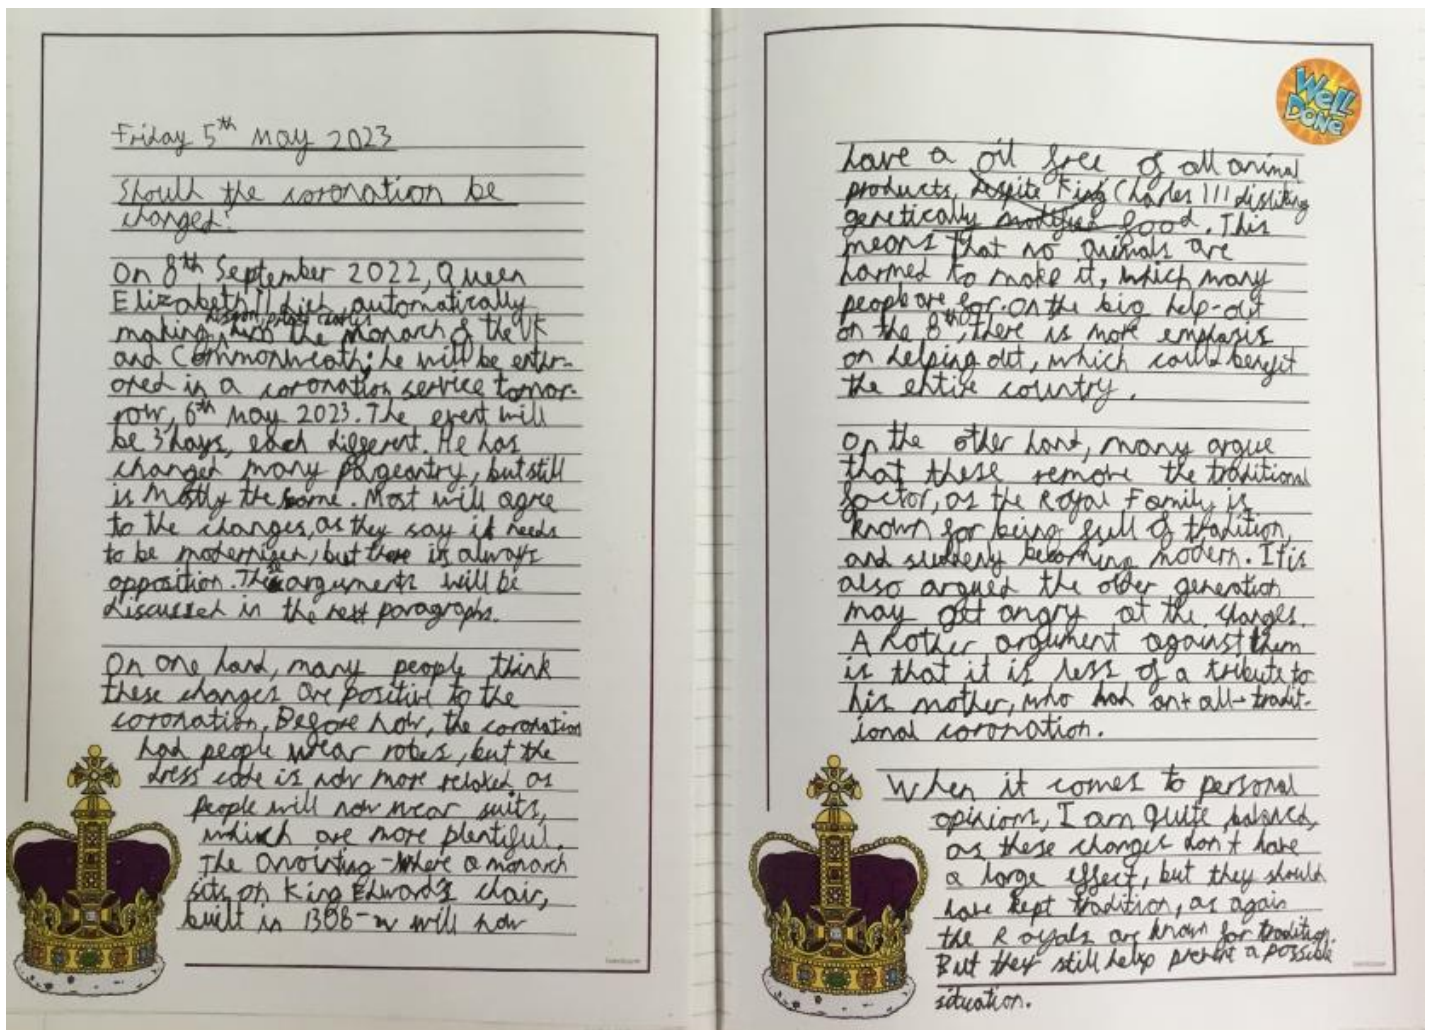 Friday 5th May 2023
Should the coronation be
changed?
On 8th September 2022, Queen
Elizabeth II died, automatically
making the Monarch of the UK
and Commonweath; he will be enter-
ored in a coronation service tomor-
row, 6th May 2023. The event will
be 3 days, each different. He has
changed many pageantry, but still
is mostly the same. Most will agree
to the changes, as they say it needs
to be modernised, but there is always
opposition. The arguments will be
discussed in the next paragraphs.
On one hand, many people think
these changes are positive to the
coronation. Before now, the coronation
had people wear robes, but the
dress code is now more relaxed as
people will now wear suits,
which are more plentiful.
The anointing - where a monarch
sits on King Edward's chair,
built in 1308 - will now
Well
Done
have a oil free of all animal
products, despite King Charles III disliking
genetically modified food. This
means that no animals are
harmed to make it, which many
people are for. On the big help-out
on the 8th, there is more emphasis
on helping out, which could benefit
the entire country.
On the other hand, many argue
that these remove the traditional
factor, as the Royal Family is
known for being full of tradition,
and suddenly becoming modern. It is
also argued the older generation
may get angry at the changes.
Another argument against them
is that it is less of a tribute to
his mother, who had an all-tradit-
ional coronation.
When it comes to personal
opinions, I am quite balanced,
as these changes don't have
a large effect, but they should
have kept tradition, as again
the Royals are known for tradition.
But they still help prevent a possible
situation.